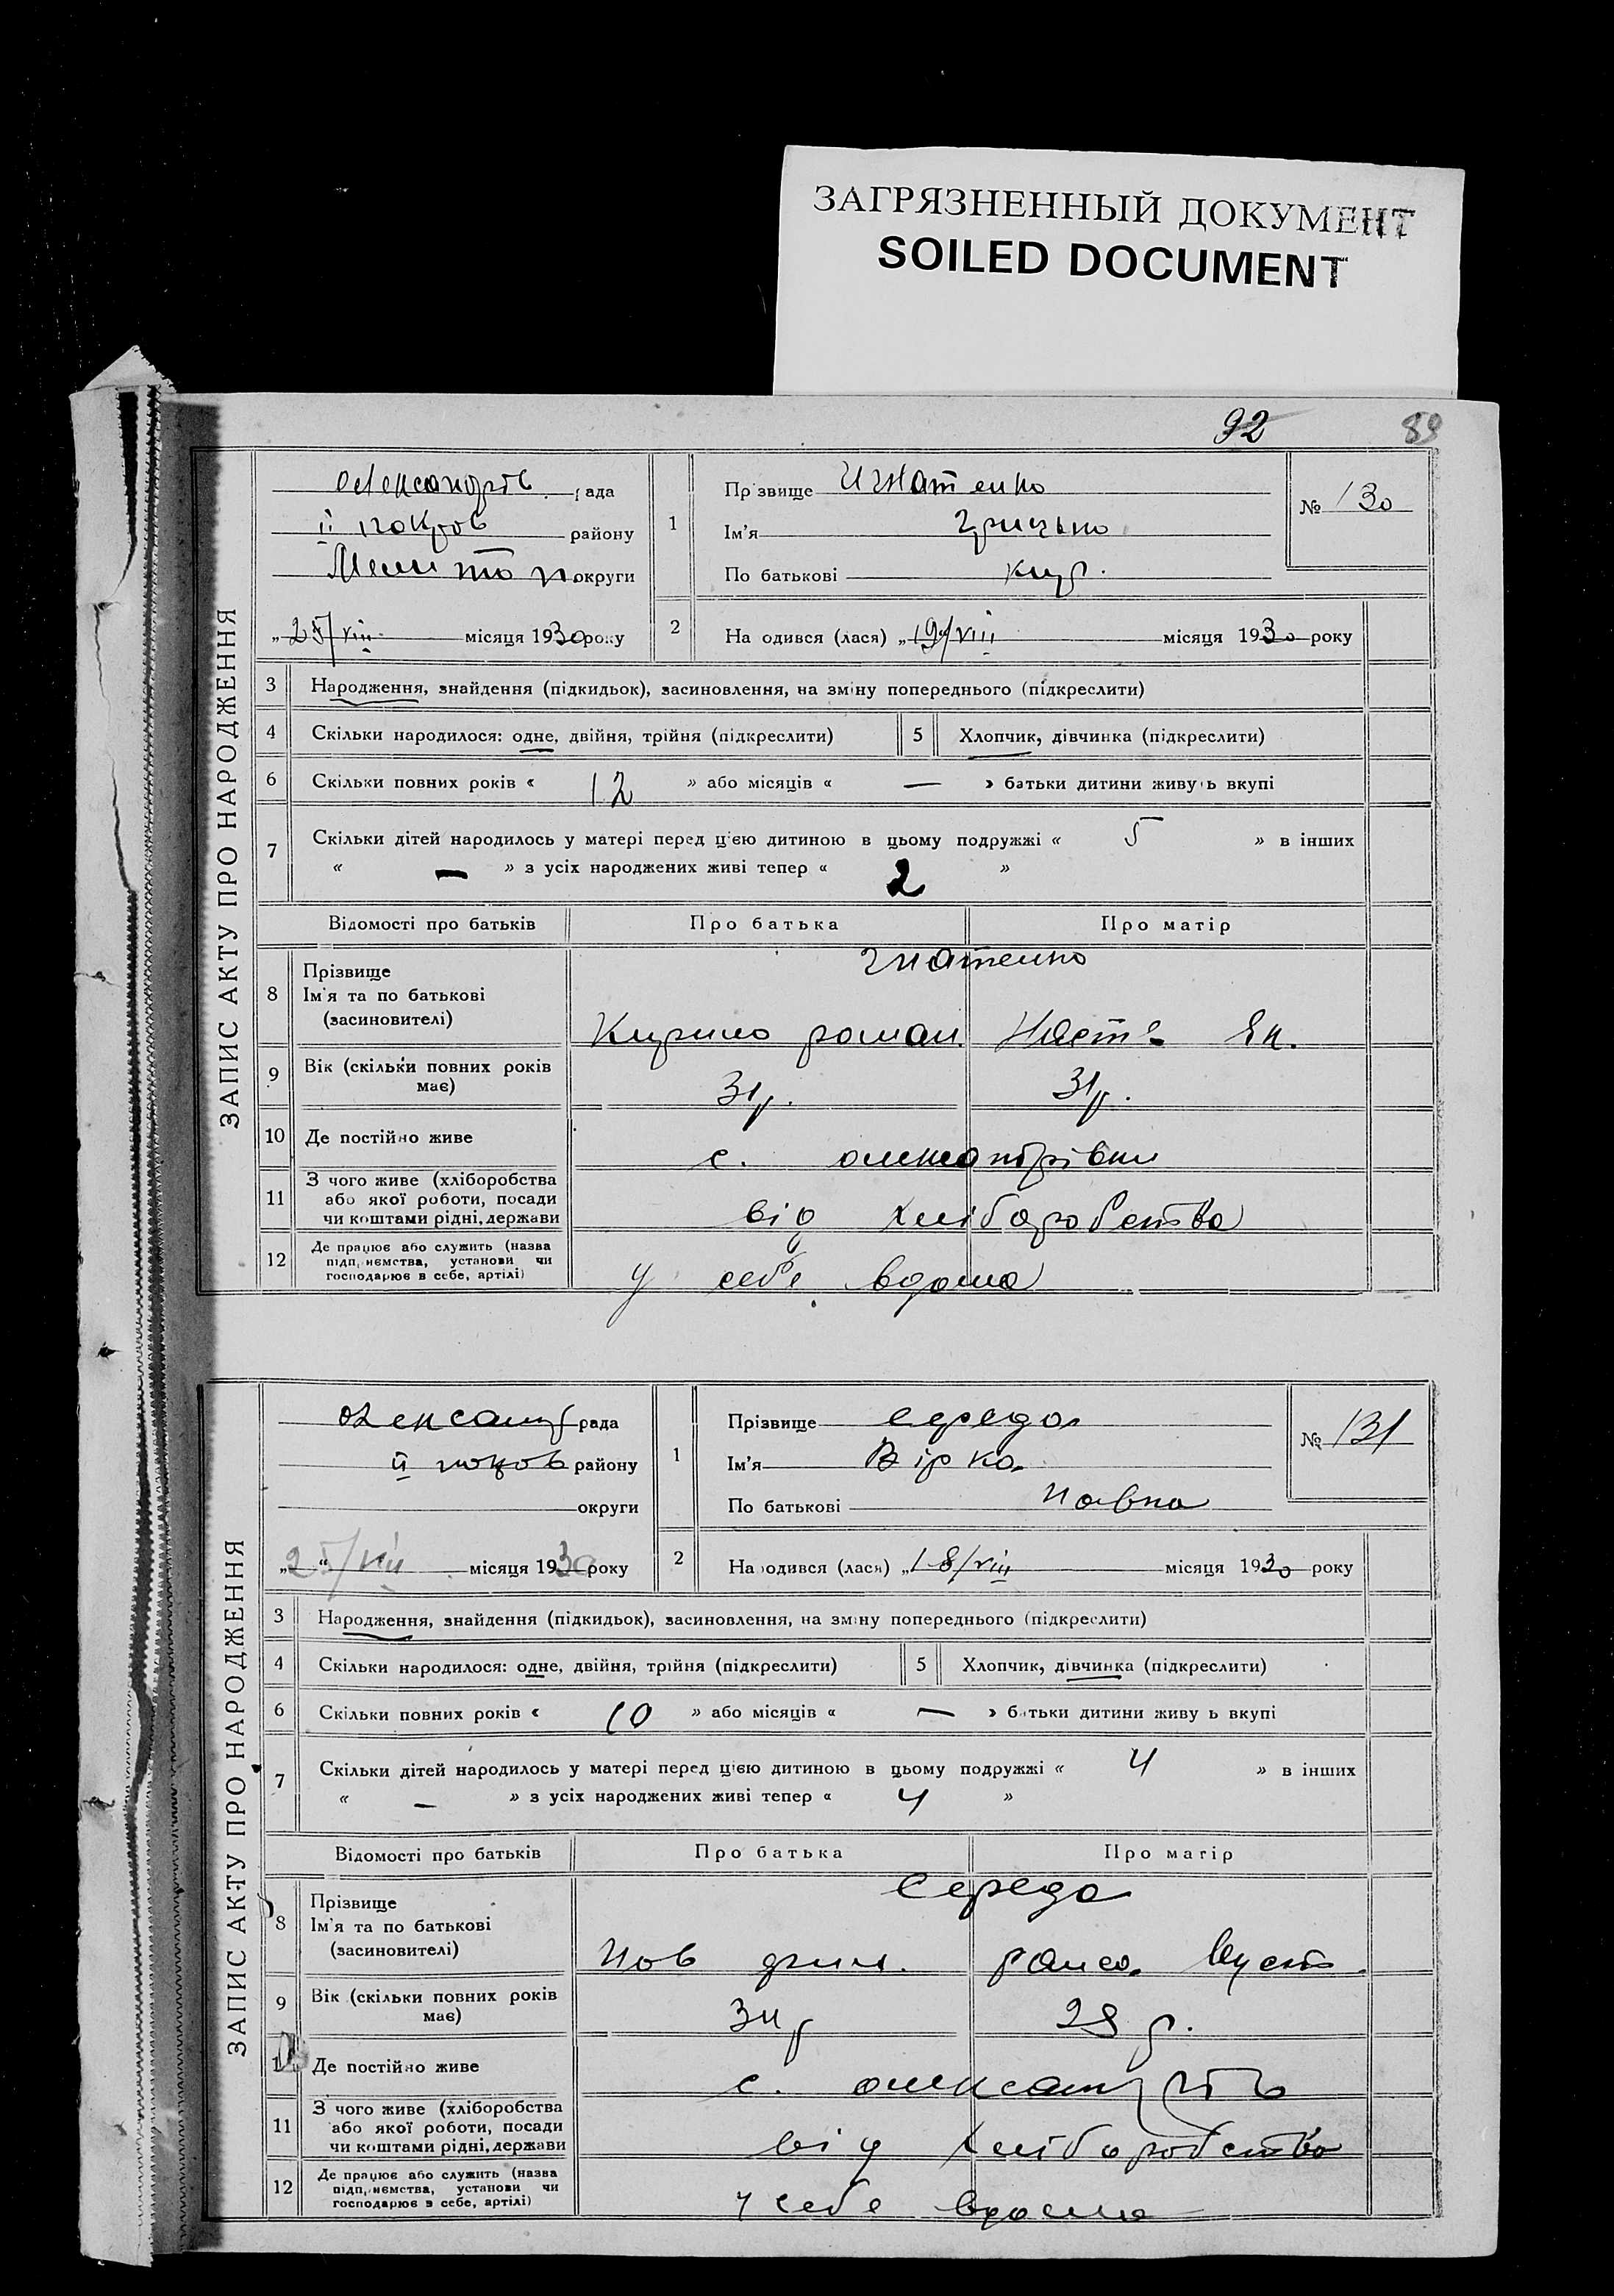 ЗАГРЯЗНЕННЫЙ ДОКУМЕНТ
SOILED DOCUMENT
92 89
ЗАПИС АКТУ ПРО НАРОДЖЕННЯ
Олександрів рада
ІІ покров району
Мелитоп округи
„25/VIII місяця 1930 року
1 Прізвище Игнатенко
Ім'я Грицько
По батькові кир.
№ 130
2 Народився (лася) „19/VIII місяця 1930 року
3 Народження, знайдення (підкидьок), засиновлення, на зміну попереднього (підкреслити)
4 Скільки народилося: одне, двійня, трійня (підкреслити) 5 Хлопчик, дівчинка (підкреслити)
6 Скільки повних років « 12 » або місяців « — » батьки дитини живуть вкупі
7 Скільки дітей народилось у матері перед цією дитиною в цьому подружжі « 5 » в інших
« — » з усіх народжених живі тепер « 2 »
Відомості про батьків Про батька Про матір
8 Прізвище
Ім'я та по батькові
(засиновителі)
Гнатенко
Кирило роман. Наст Як.
9 Вік (скільки повних років
має)
31 р. 31 р.
10 Де постійно живе с.
11 З чого живе (хліборобства
або якої роботи, посади
чи коштами рідні, держави
від хліборобства
12 Де працює або служить (назва
підприємства, установи чи
господарює в себе, артілі)
у себе вдома
ЗАПИС АКТУ ПРО НАРОДЖЕННЯ
Олександр рада
ІІ покров району
округи
„25/VIII місяця 1930 року
1 Прізвище середа
Ім'я Вірка
По батькові Павла
№ 131
2 Народився (лася) „18/VIII місяця 1930 року
3 Народження, знайдення (підкидьок), засиновлення, на зміну попереднього (підкреслити)
4 Скільки народилося: одне, двійня, трійня (підкреслити) 5 Хлопчик, дівчинка (підкреслити)
6 Скільки повних років « 10 » або місяців « — » батьки дитини живуть вкупі
7 Скільки дітей народилось у матері перед цією дитиною в цьому подружжі « 4 » в інших
« — » з усіх народжених живі тепер « 4 »
Відомості про батьків Про батька Про матір
8 Прізвище
Ім'я та по батькові
(засиновителі)
Середа
9 Вік (скільки повних років
має)
34 р 28 р.
10 Де постійно живе с.
11 З чого живе (хліборобства
або якої роботи, посади
чи коштами рідні, держави
від хліборобства
12 Де працює або служить (назва
підприємства, установи чи
господарює в себе, артілі)
у себе вдома